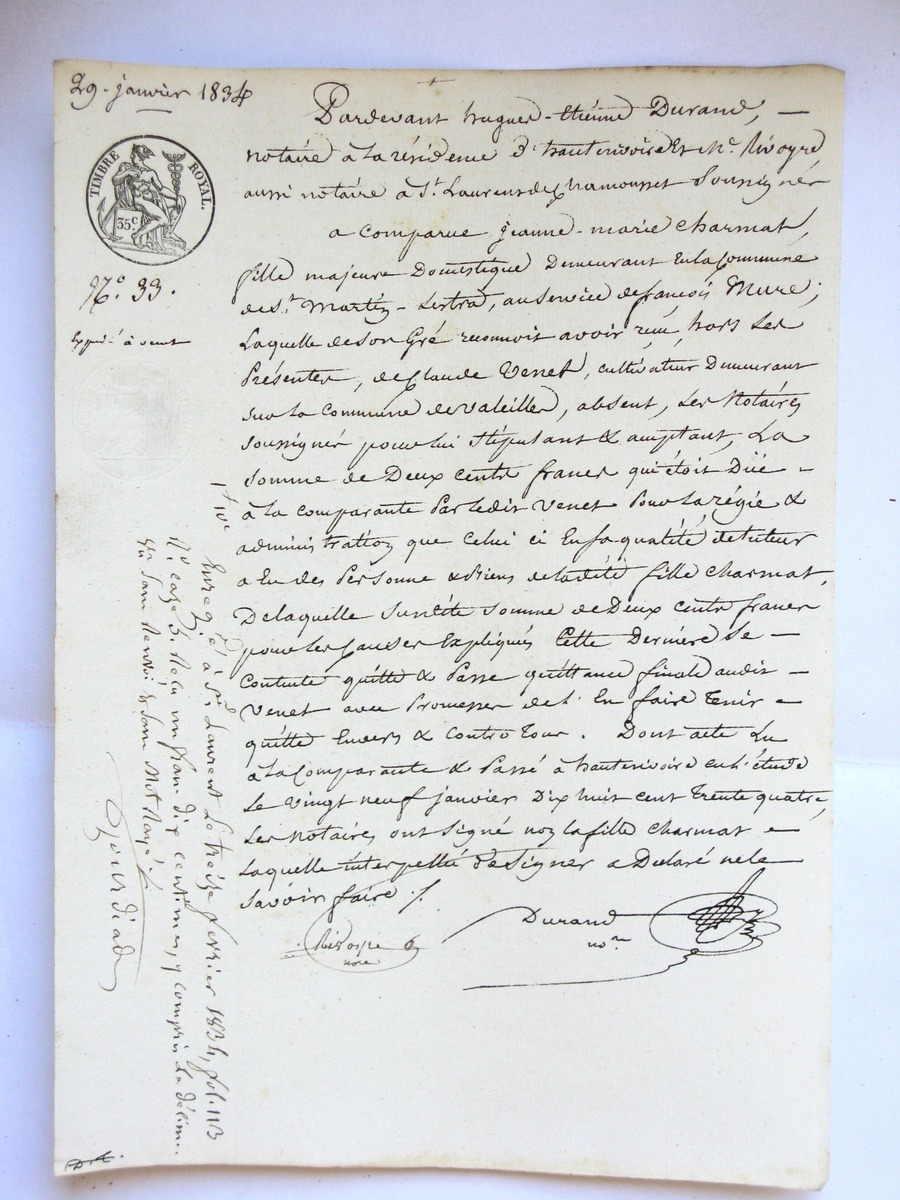 29. janvier 1834
TIMBRE ROYAL.
35c
N.o 33.
Expedié à venet
Pardevant hugues-étiénne Durand, —
notaire à la résidence d'hauterivoire Et Me. Rivoyre
aussi notaire à St. Laurent de chamousset Soussignés
a comparue jeanne-marie charmat,
fille majeure Domestique Demeurant En la Commune
de St. Martin-Lestra, au Service de françois Mure;
Laquelle de son Gré reconnoit avoir reçu, hors Les
Présentes, de Claude Venet, cultivateur Demeurant
sur la Commune de valeilles, absent, Les Notaires
soussignés pour lui stipulant & acceptant, La
somme de Deux cents francs qui étoit Düe —
à la comparante Par ledit Venet Pour la régie &
administration que Celui ci En sa qualité de tuteur
a Eu des Personne & Biens de ladite fille charmat,
De laquelle susdite somme de Deux cents francs
pour les Causes Expliqués Cette Derniere se —
Contente quitte & Passe quittance finale audit —
venet avec Promesses de l'En faire Tenir —
quitte Envers & Contre Tous. Dont acte Lu
à la Comparante & Passé à hauterivoire en l'étude
Le vingt neuf janvier Dix huit cent trente quatre,
Les Notaires ont signé non la fille charmat —
Laquelle interpellée de signer a Déclaré ne le
savoir faire ./.
Rivoyre
nore
Durand
nore
1f 10c
Enregé. à St. Laurent Le treize fevrier 1834, fol. 113
Ro. case 3. Reçu un franc dix centimes, y compris Le décime.
sans Renvoi & sans Mot Rayé ./.
Gourdiad